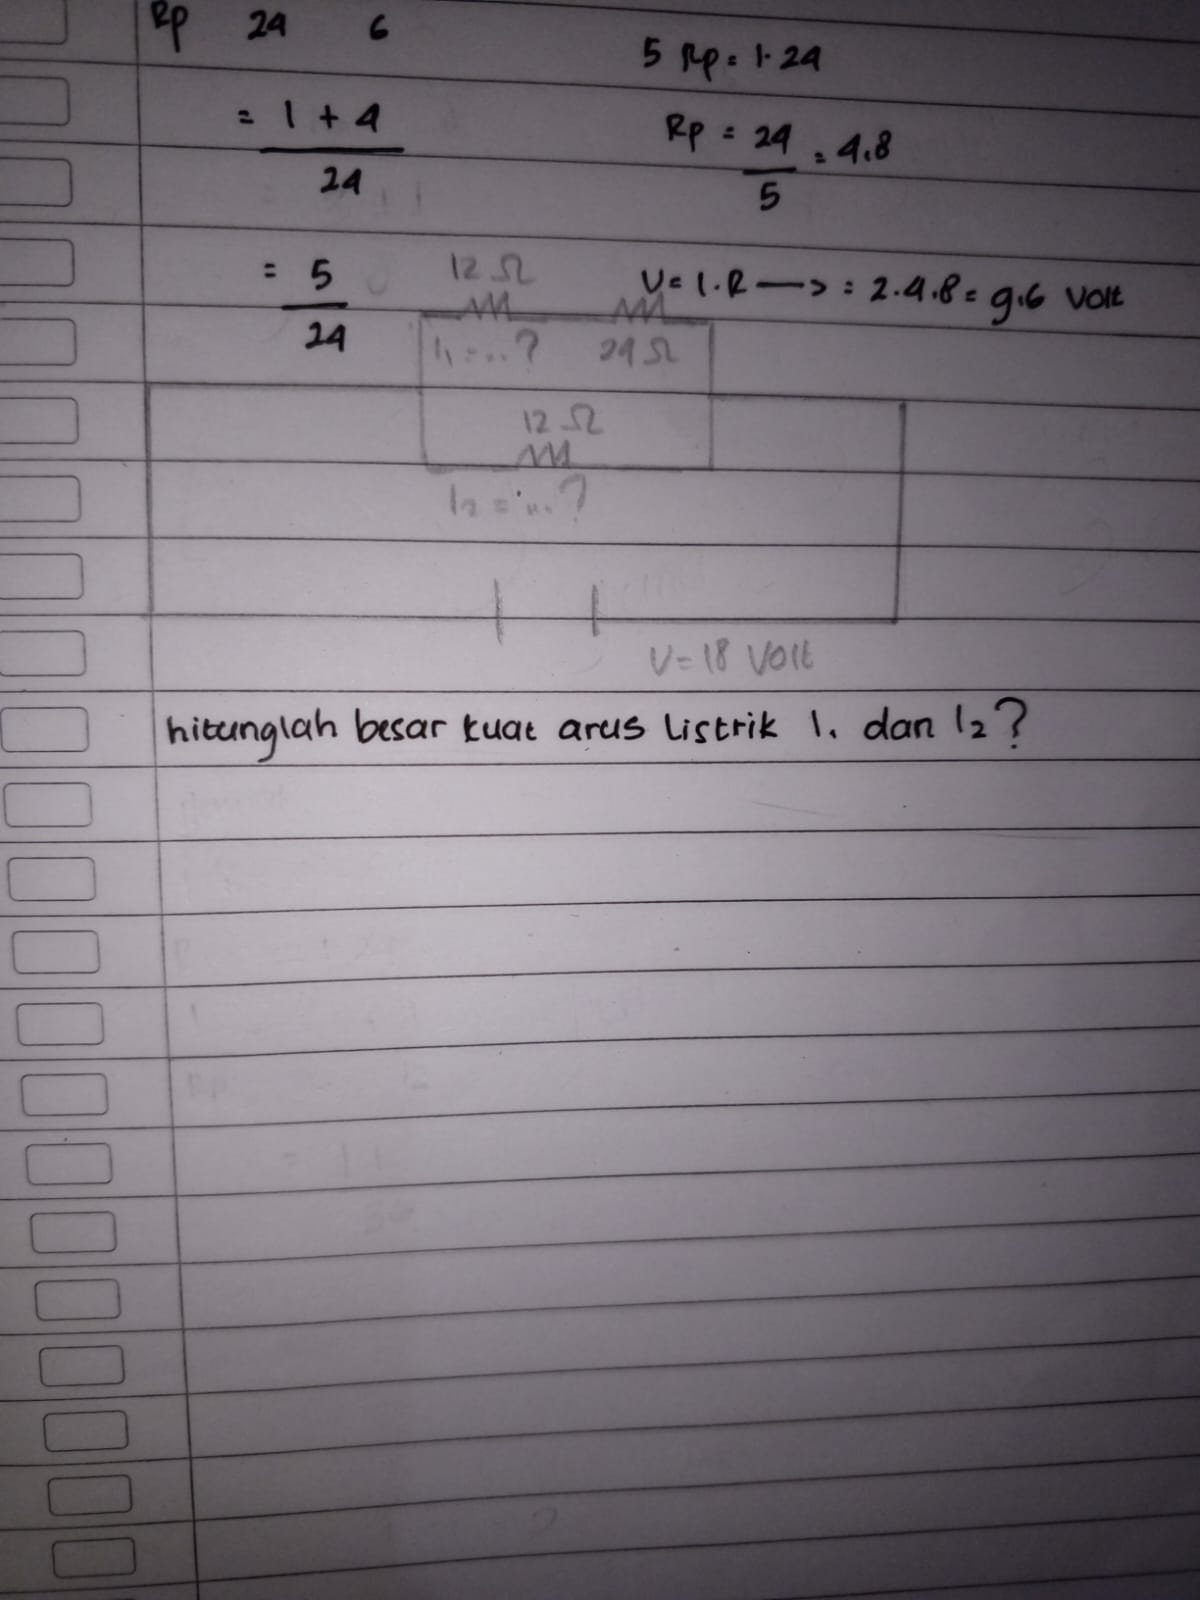 Rp 24 6
= 1 + 4
24
= 5
24
5 Rp = 1. 24
Rp = 24 = 4,8
5
V = I.R —> = 2.4,8 = 9,6 Volt
12 Ω
I1 = ...? 24 Ω
12 Ω
I2 = ...?
V = 18 Volt
hitunglah besar kuat arus Listrik I1 dan I2?